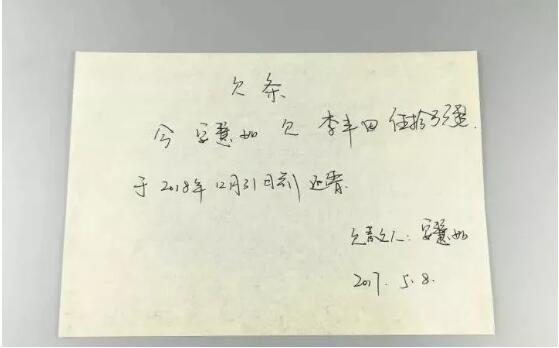 欠条
今 安慧如 欠 李丰田 伍拾万整.
于2018年12月31日前 还清.
欠款人: 安慧如
2017. 5. 8.